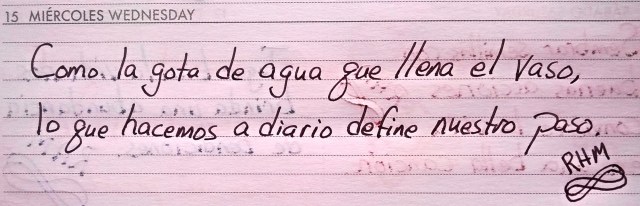 15 MIÉRCOLES WEDNESDAY
Como la gota de agua que llena el vaso,
lo que hacemos a diario define nuestro paso.
RHM